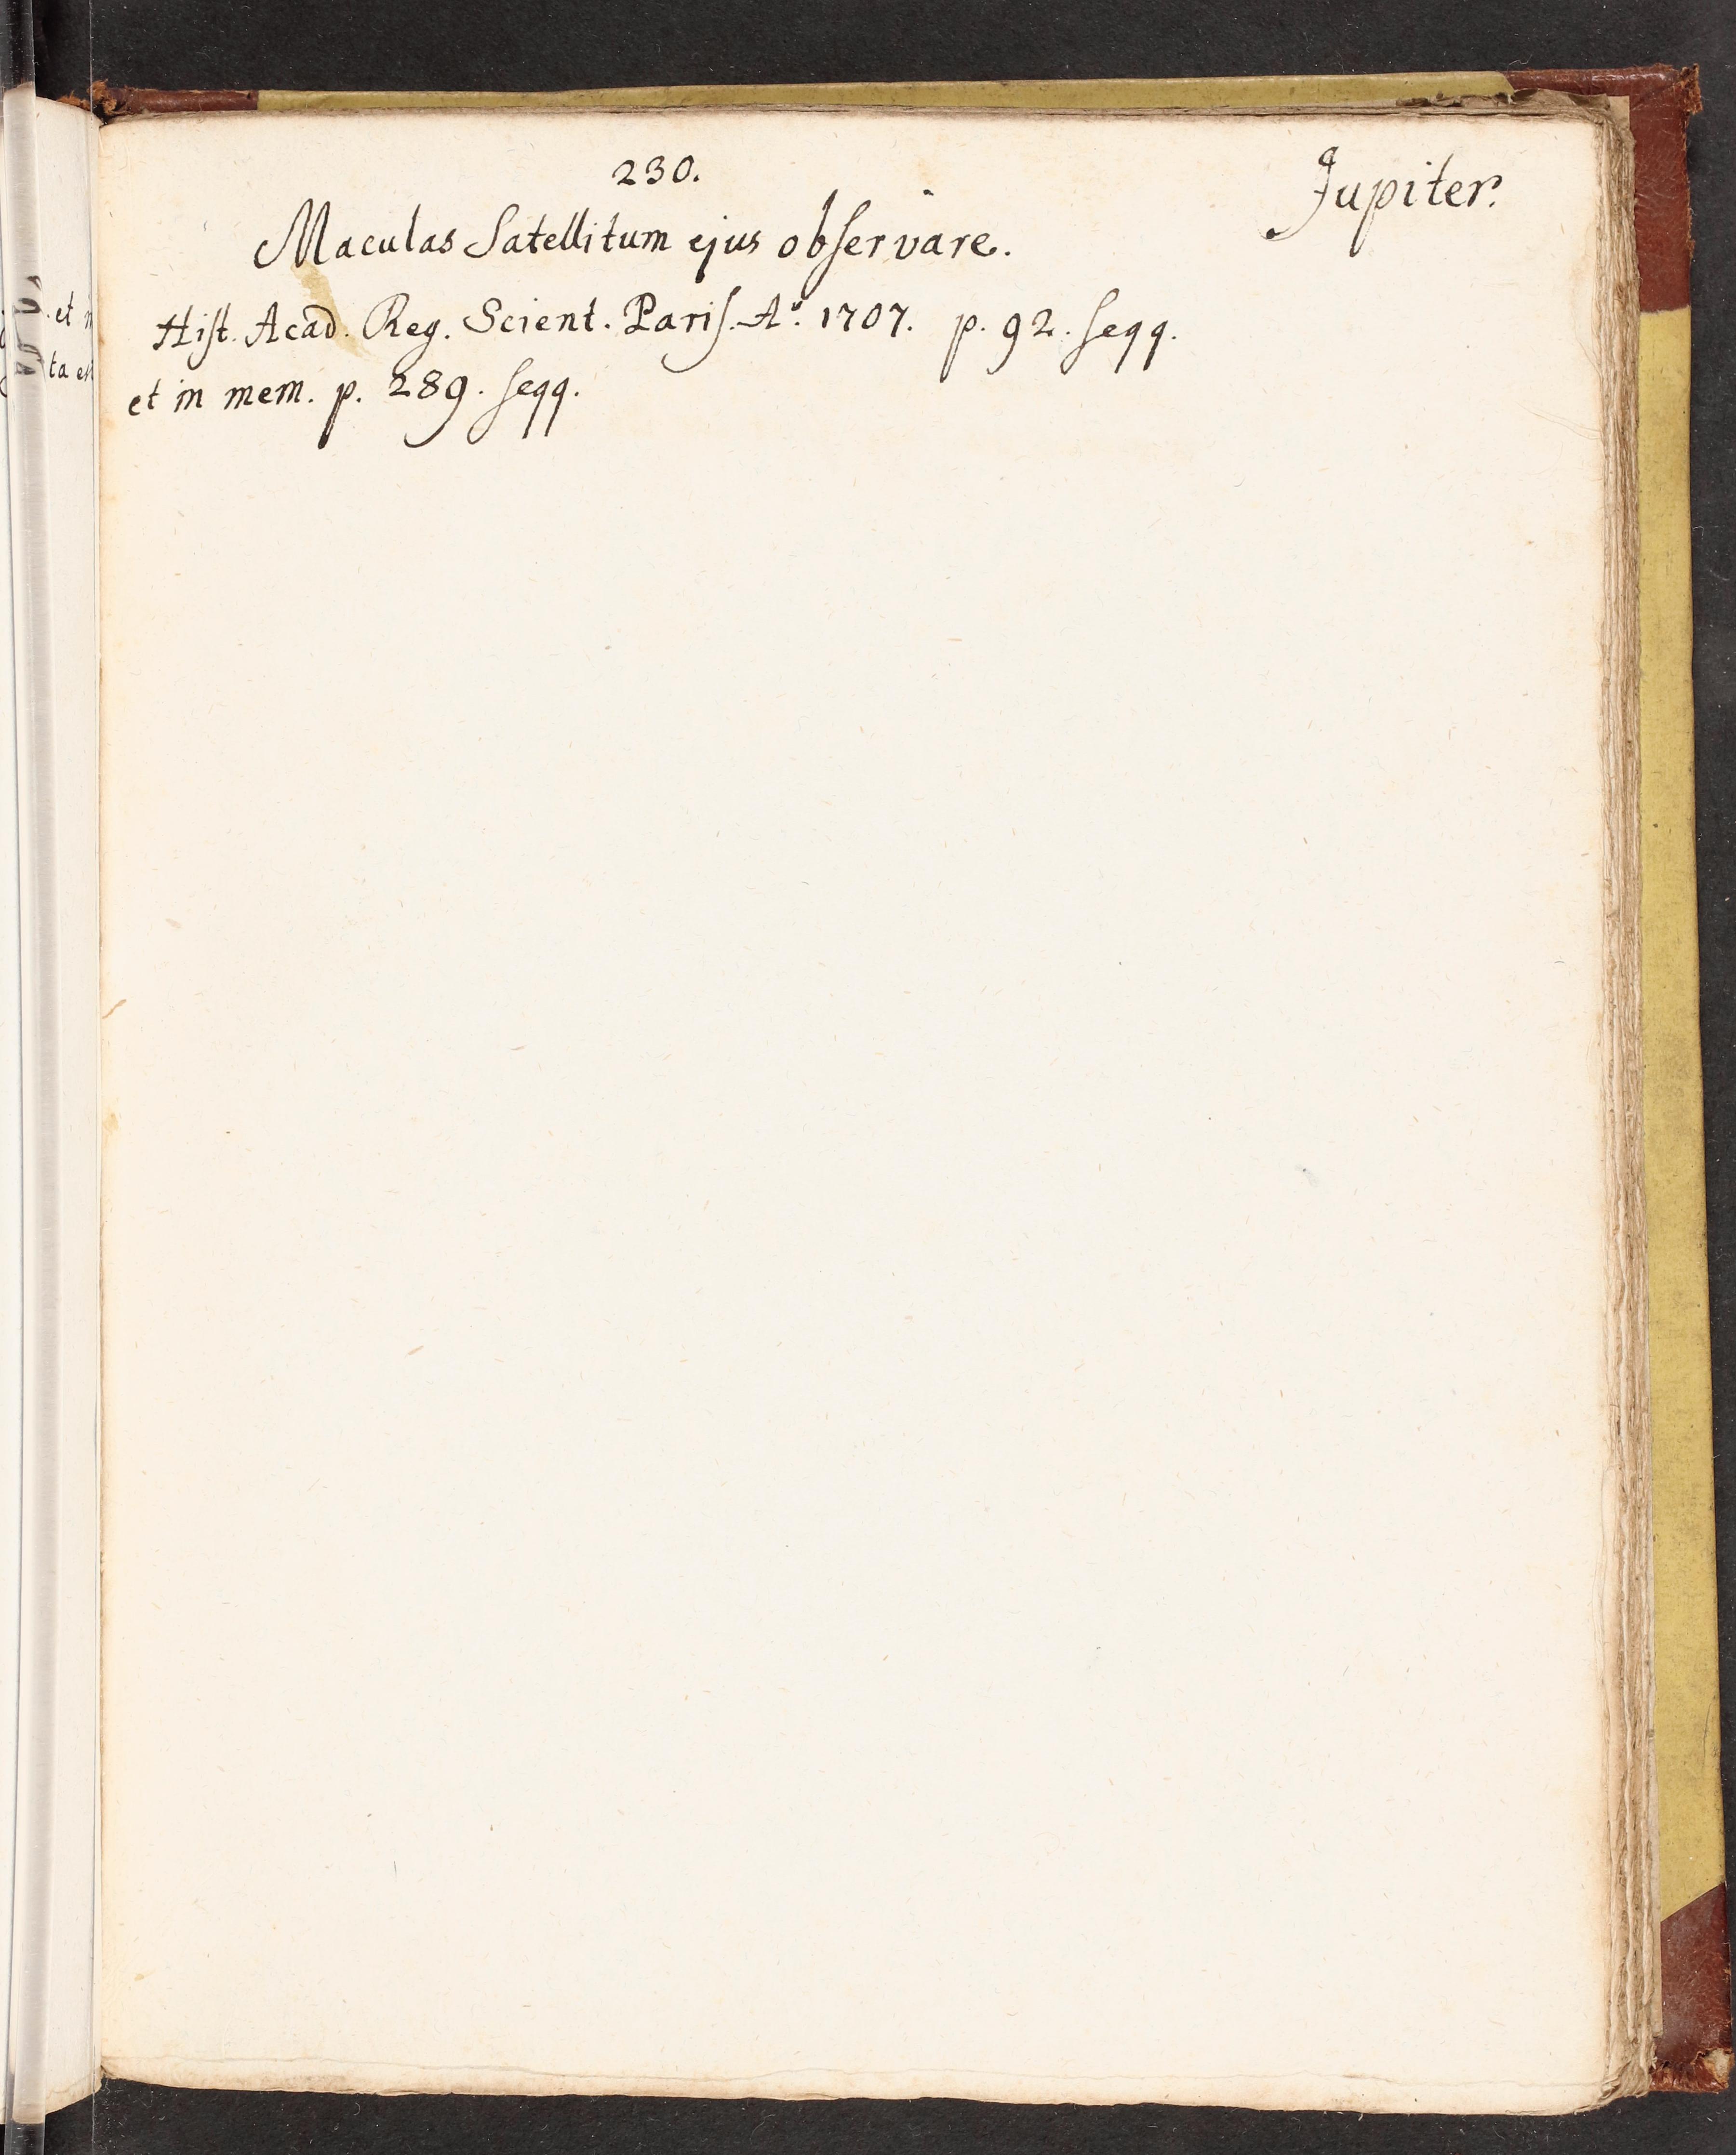 230.
Jupiter.
Maculas Satellitum ejus obſervare.
Hiſt. Acad. Reg. Scient. Pariſ. Aº. 1707. p. 92. ſeqq.
et in mem. p. 289. ſeqq.
et
ta